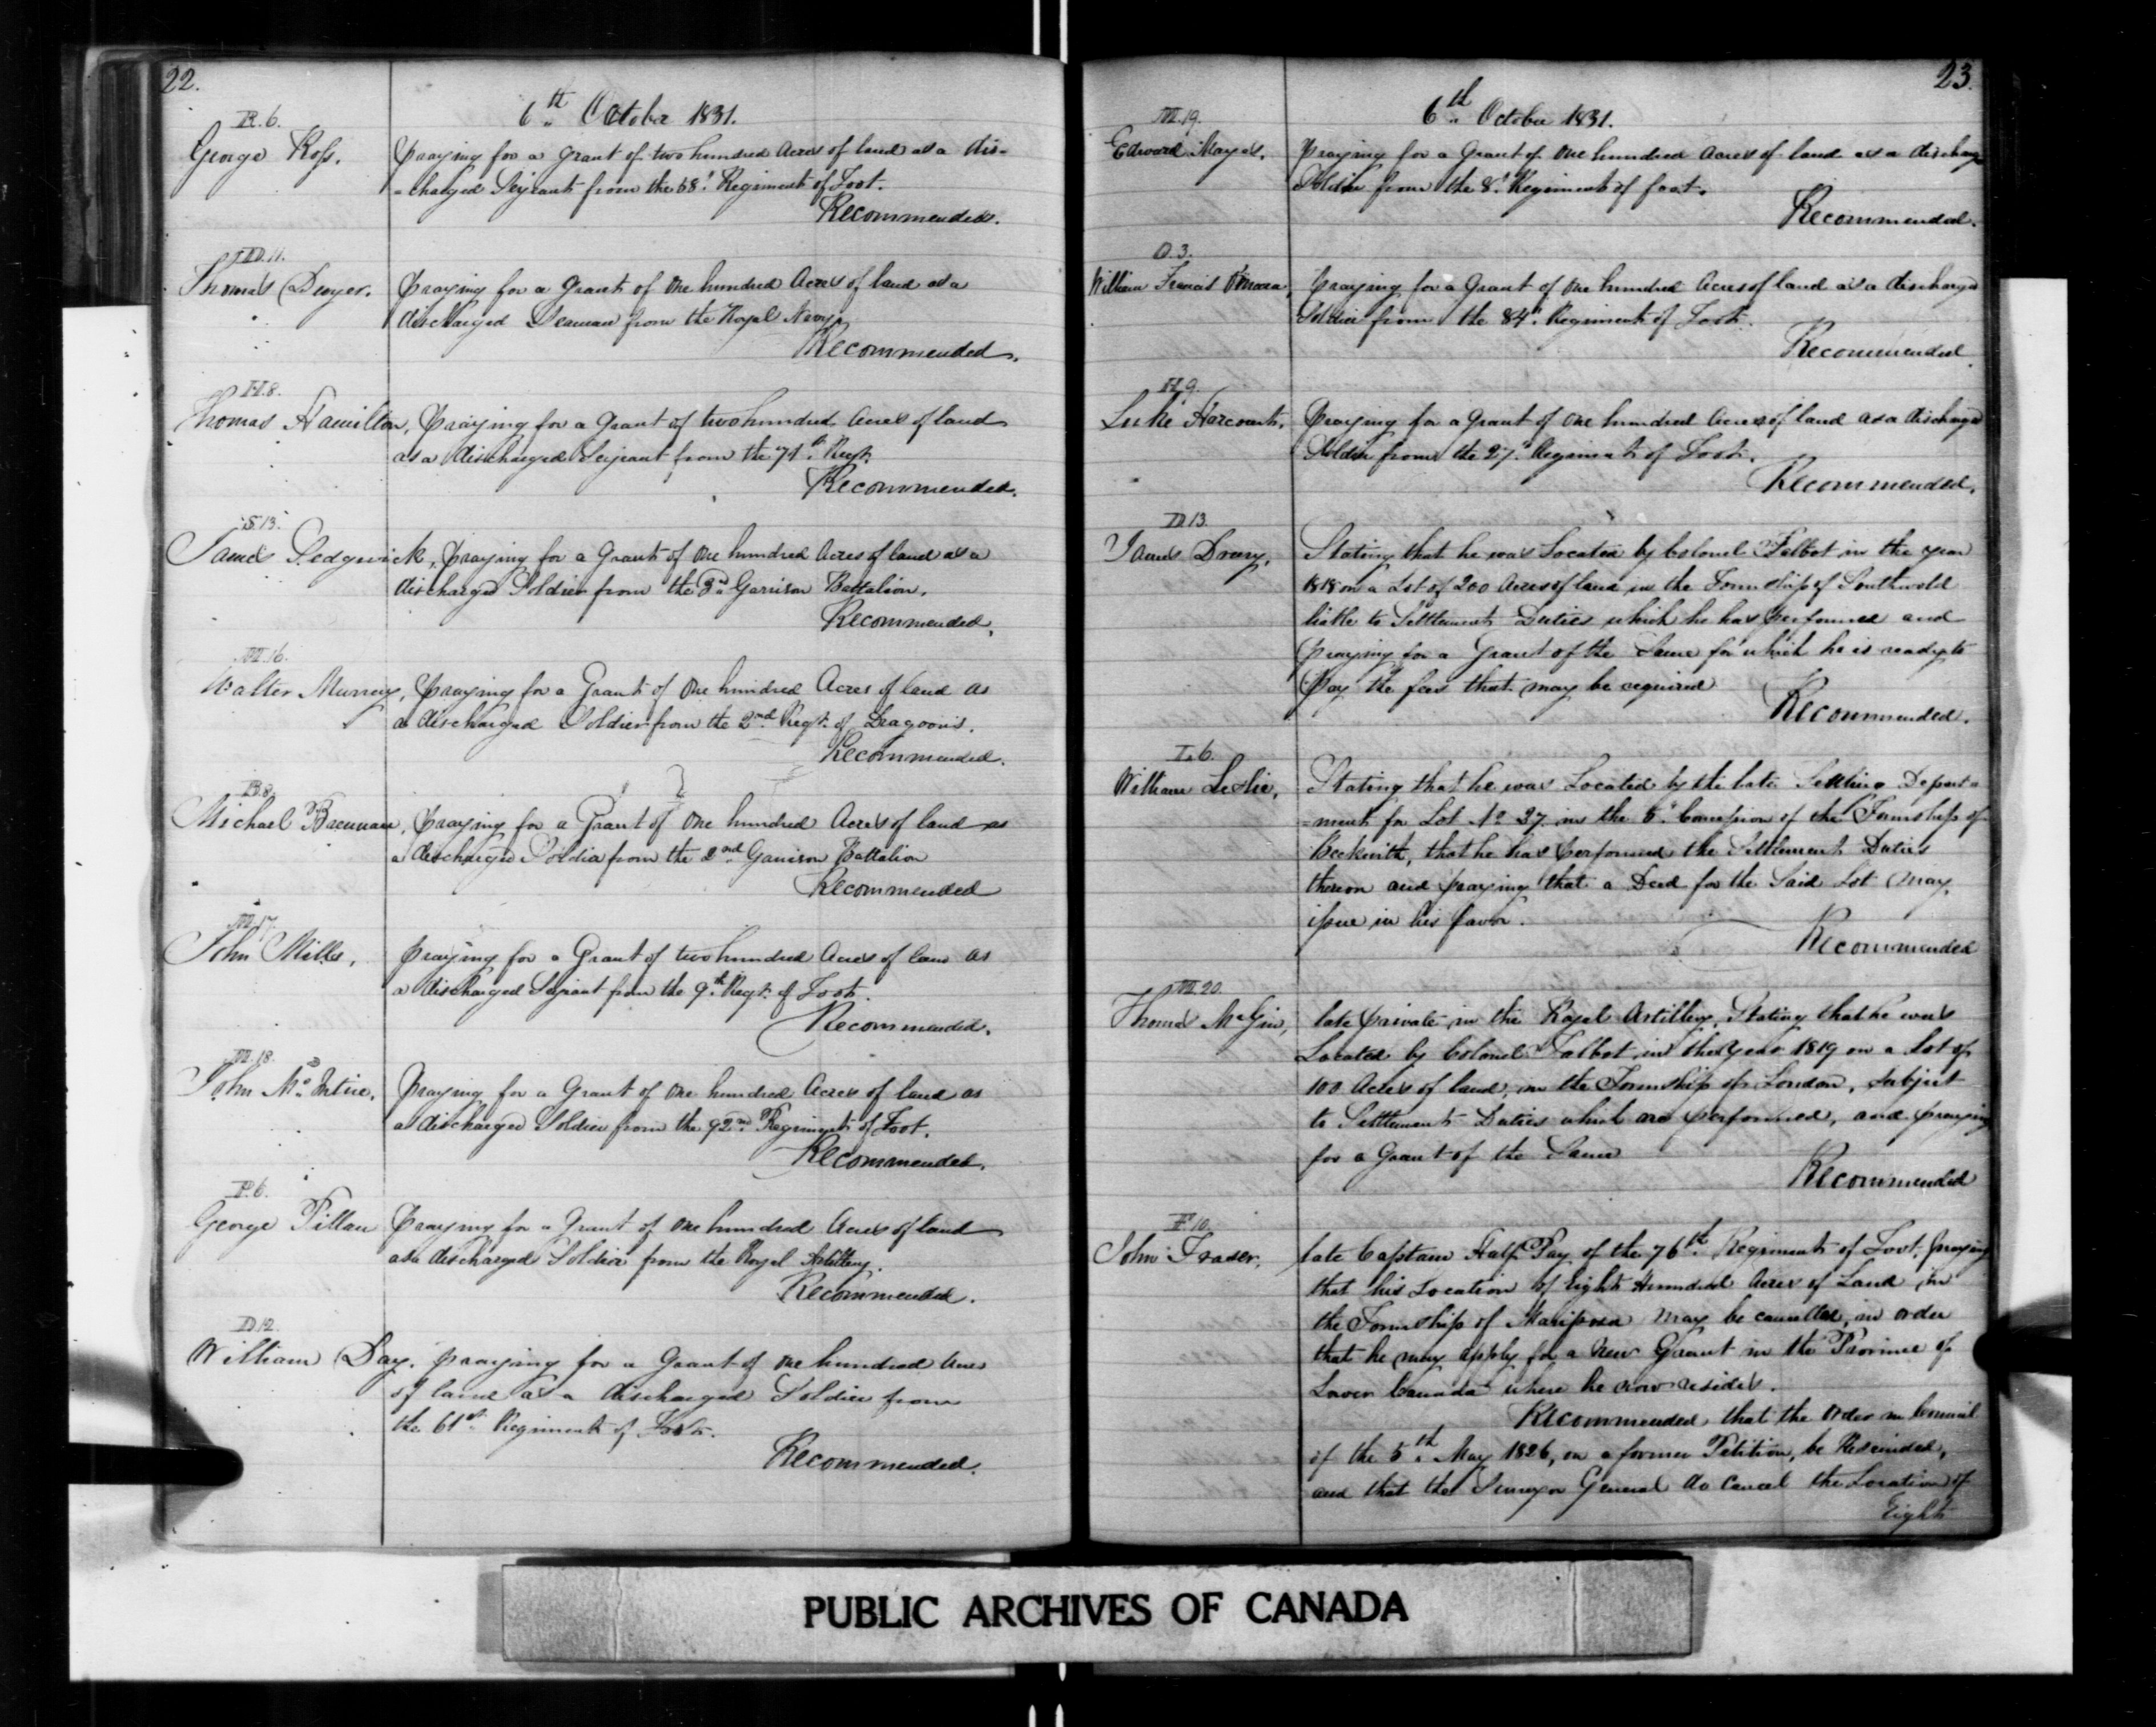 22.
6th October 1831.
R.6.
George Ross. praying for a grant of two hundred Acres of land as a dis-
-charged Serjeant from the 68th Regiment of Foot.
Recommended.
D.11.
Thomas Dwyer. praying for a Grant of One hundred Acres of land as a
discharged Seaman from the Royal Navy.
Recommended.
H.8.
Thomas Hamilton, praying for a Grant of two hundred Acres of land
as a discharged Serjeant from the 71th Regt.
Recommended.
S.13.
James Sedgwick, praying for a Grant of One hundred Acres of land as a
discharged Soldier from the 3rd Garrison Battalion.
Recommended.
M.16.
Walter Murray, praying for a Grant of One hundred Acres of land as
a discharged Soldier from the 2nd Regt. of Dragoons.
Recommended.
B.8.
Michael Brennan, praying for a Grant of One hundred Acres of land as
a discharged Soldier from the 2nd Garrison Battalion
Recommended
M.17.
John Mills, praying for a Grant of two hundred Acres of land as
a discharged Serjeant from the 9th Regt. of Foot.
Recommended.
M.18.
John McIntire, praying for a Grant of One hundred Acres of land as
a discharged Soldier from the 92nd Regiment of Foot.
Recommended.
P.6.
George Pillan praying for a Grant of One hundred Acres of land
as a discharged Soldier from the Royal Artillery.
Recommended.
D.12.
William Day. praying for a Grant of one hundred Acres
of land as a discharged Soldier from
the 61st Regiment of Foot.
Recommended.
23.
6th October 1831.
M.19.
Edward Mayes, praying for a Grant of One hundred Acres of land as a discharged
Soldier from the 8th Regiment of foot.
Recommended.
O.3.
William Francis Omeara, praying for a Grant of One hundred Acres of land as a discharged
Soldier from the 84th Regiment of Foot.
Recommended
H.9.
Luke Harcourt, Praying for a Grant of One hundred Acres of land as a discharged
Soldier from the 27th Regiment of Foot.
Recommended.
D.13.
James Drury, Stating that he was Located by Colonel Talbot in the year
1818 on a Lot of 200 Acres of land in the Township of Southwold
liable to Settlement Duties which he has performed and
praying for a Grant of the Same for which he is ready to
Pay the fees that may be required
Recommended.
L.6.
William Leslie, Stating that he was Located by the late Settling Depart-
-ment for Lot No 27 in the 5th Concession of the Township of
Beckwith, that he has performed the Settlement Duties
thereon and praying that a Deed for the Said Lot may
issue in his favor.
Recommended
M.20.
Thomas McGin, late private in the Royal Artillery, Stating that he was
Located by Colonel Talbot in the Year 1819 on a Lot of
100 Acres of land, in the Township of London, Subject
to Settlement Duties which are performed, and praying
for a Grant of the Same
Recommended
F.10.
John Fraser, late Captain Half Pay of the 76th Regiment of Foot, praying
that his Location of Eight Hundred Acres of Land in
the Township of Mariposa may be cancelled, in order
that he may apply for a New Grant in the Province of
Lower Canada where he now resides.
Recommended, that the Order in Council
of the 5th May 1826, on a former Petition, be Rescinded,
and that the Surveyor General do Cancel the Location of
Eight
PUBLIC ARCHIVES OF CANADA